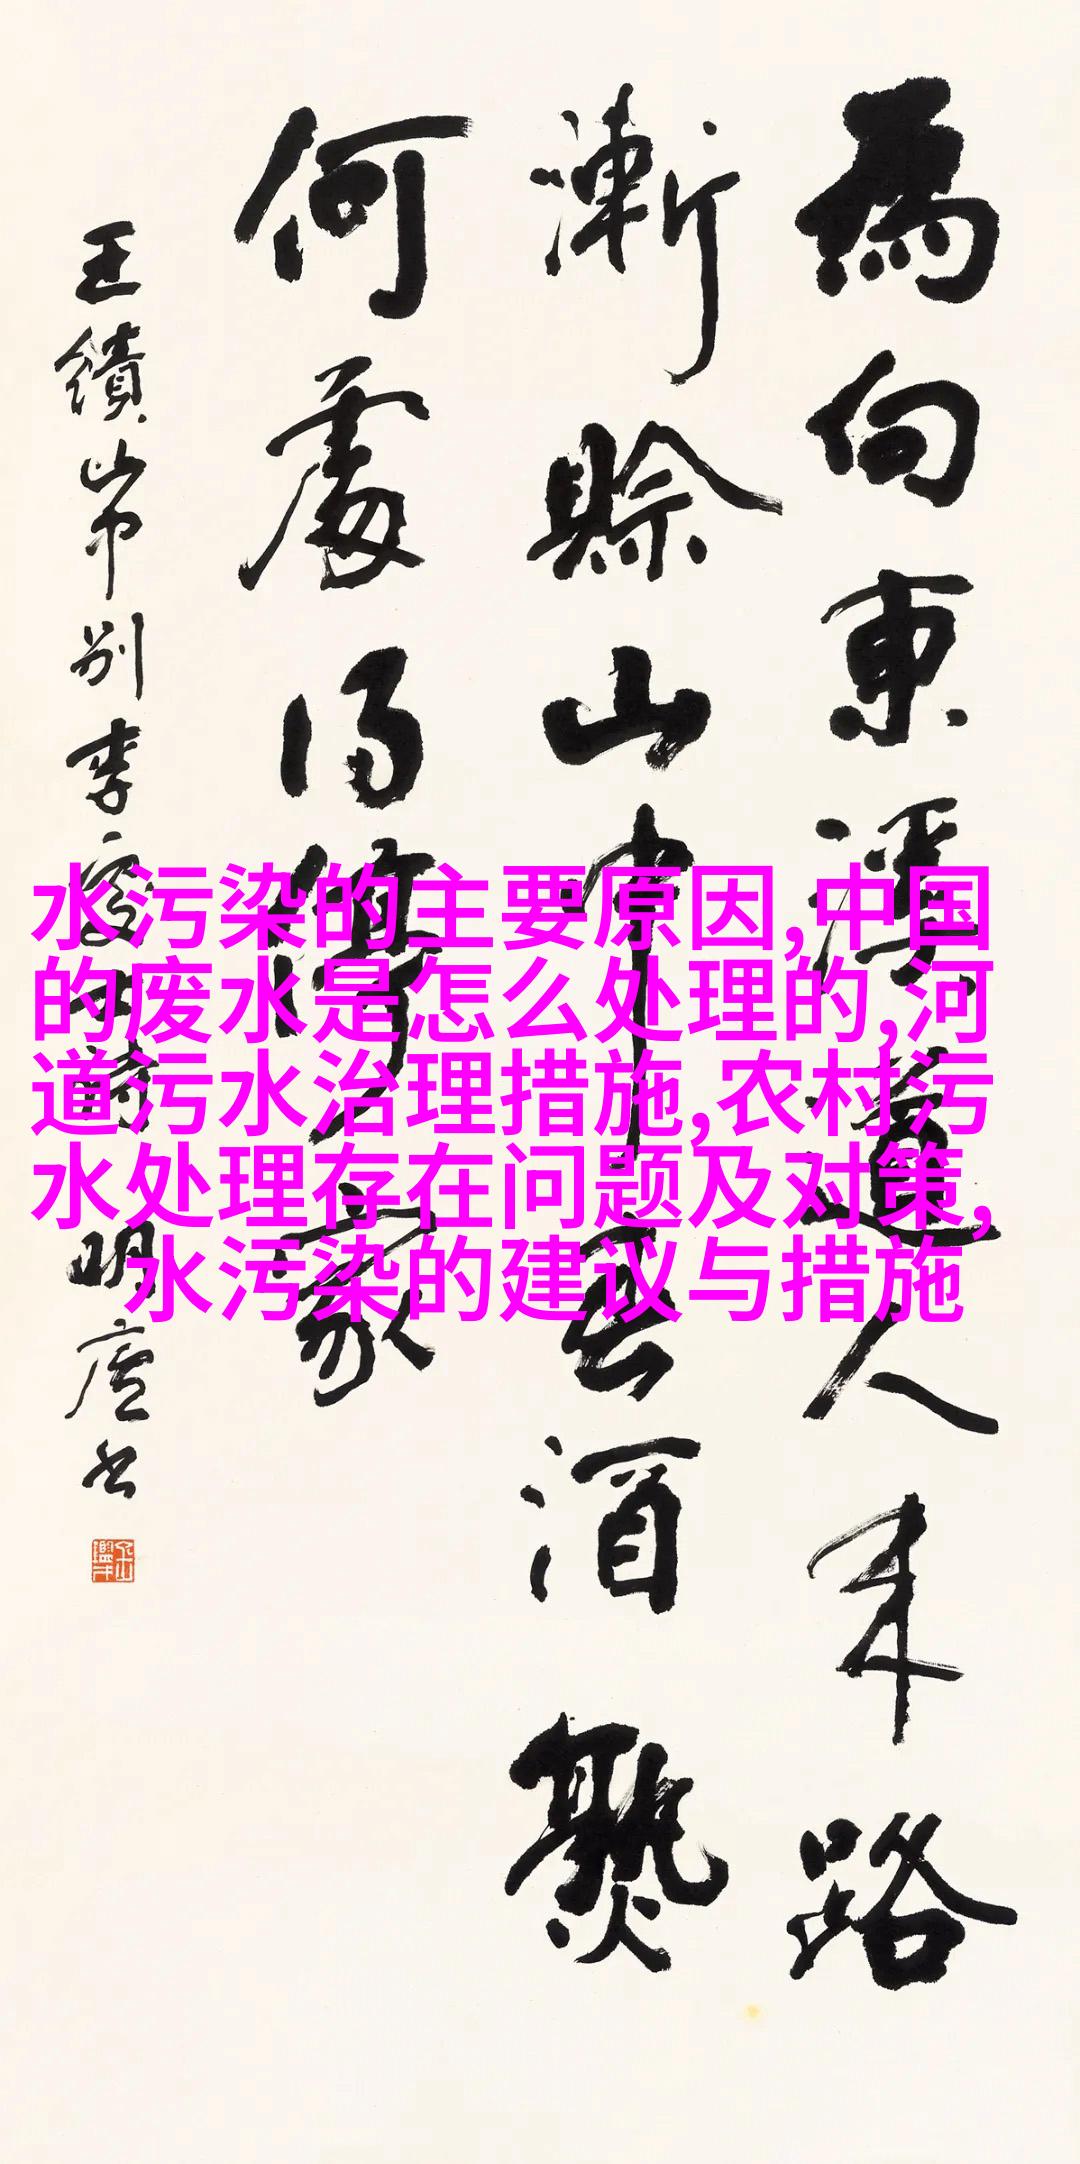 為向東溪道人來路
漸賒山中春酒熟
何處得停家
王績山中別李處士詩明廬書
水污染的主要原因,中国
的废水是怎么处理的,河
道污水治理措施,农村污
水处理存在问题及对策,
水污染的建议与措施